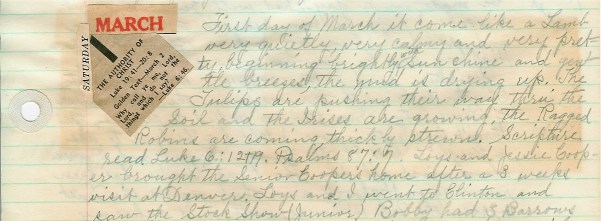 SATURDAY
MARCH
THE AUTHORITY OF
CHRIST
Luke 19:41—20:8
Golden Text—March 2
Why call ye me, Lord,
Lord, and do not the
things which I say?
—Luke 6:46.
First day of March it come like a Lamb
very quietly, very calmy and very pret
tie, beginning brightly sun shine and gent
tle breezes, the mud is drying up. The
Tulips are pushing their way thru the
Soil and the Irises are growing, the Ragged
Robins are coming thickly strewn. Scripture
read Luke 6:12-19. Psalms 87:1-7. Loys and Jessie Coop-
er brought the Senior Coopers home after a 3 weeks
visit at Denver. Loys and I went to Clinton and
saw the Stock Show (Junior) Bobby had 3 Barrows